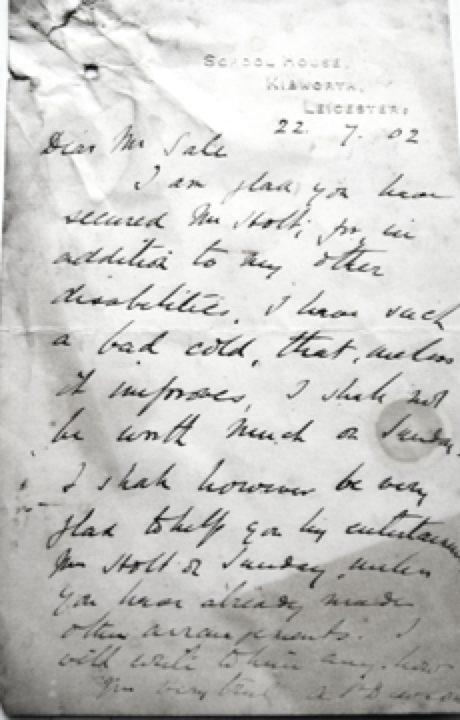 SCHOOL HOUSE,
KIBWORTH,
LEICESTER.
22. 7. 02
Dear Mr Sale
I am glad you have
secured Mr Holt, for in
addition to my other
disabilities, I have such
a bad cold, that, unless
it improves, I shall not
be worth much on Sunday.
I shall however be very
glad to help you by entertaining
Mr Holt on Sunday, unless
you have already made
other arrangements. I
will write to him anyhow
Yrs very truly